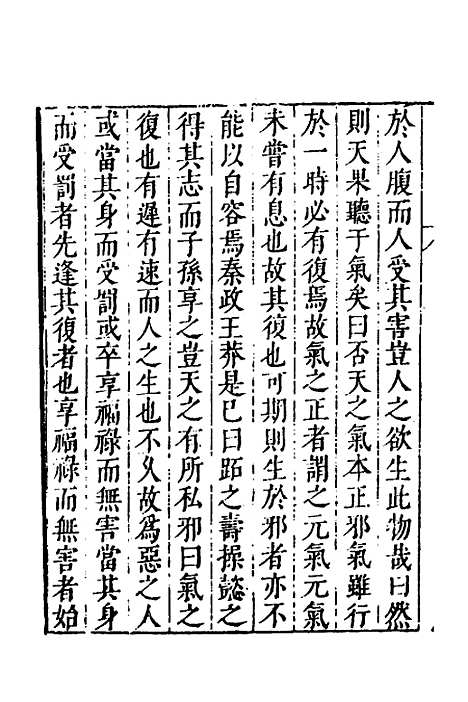 於人腹而人受其害豈人之欲生此物哉曰然
則天果聽于氣矣曰否天之氣本正邪氣雖行
於一時必有復焉故氣之正者謂之元氣元氣
未嘗有息也故其復也可期則生於邪者亦不
能以自容焉秦政王莽是已曰跖之壽操懿之
得其志而子孫享之豈天之有所私邪曰氣之
復也有遲有速而人之生也不久故為惡之人
或當其身而受罰或卒享福祿而無害當其身
而受罰者先逢其復者也享福祿而無害者始